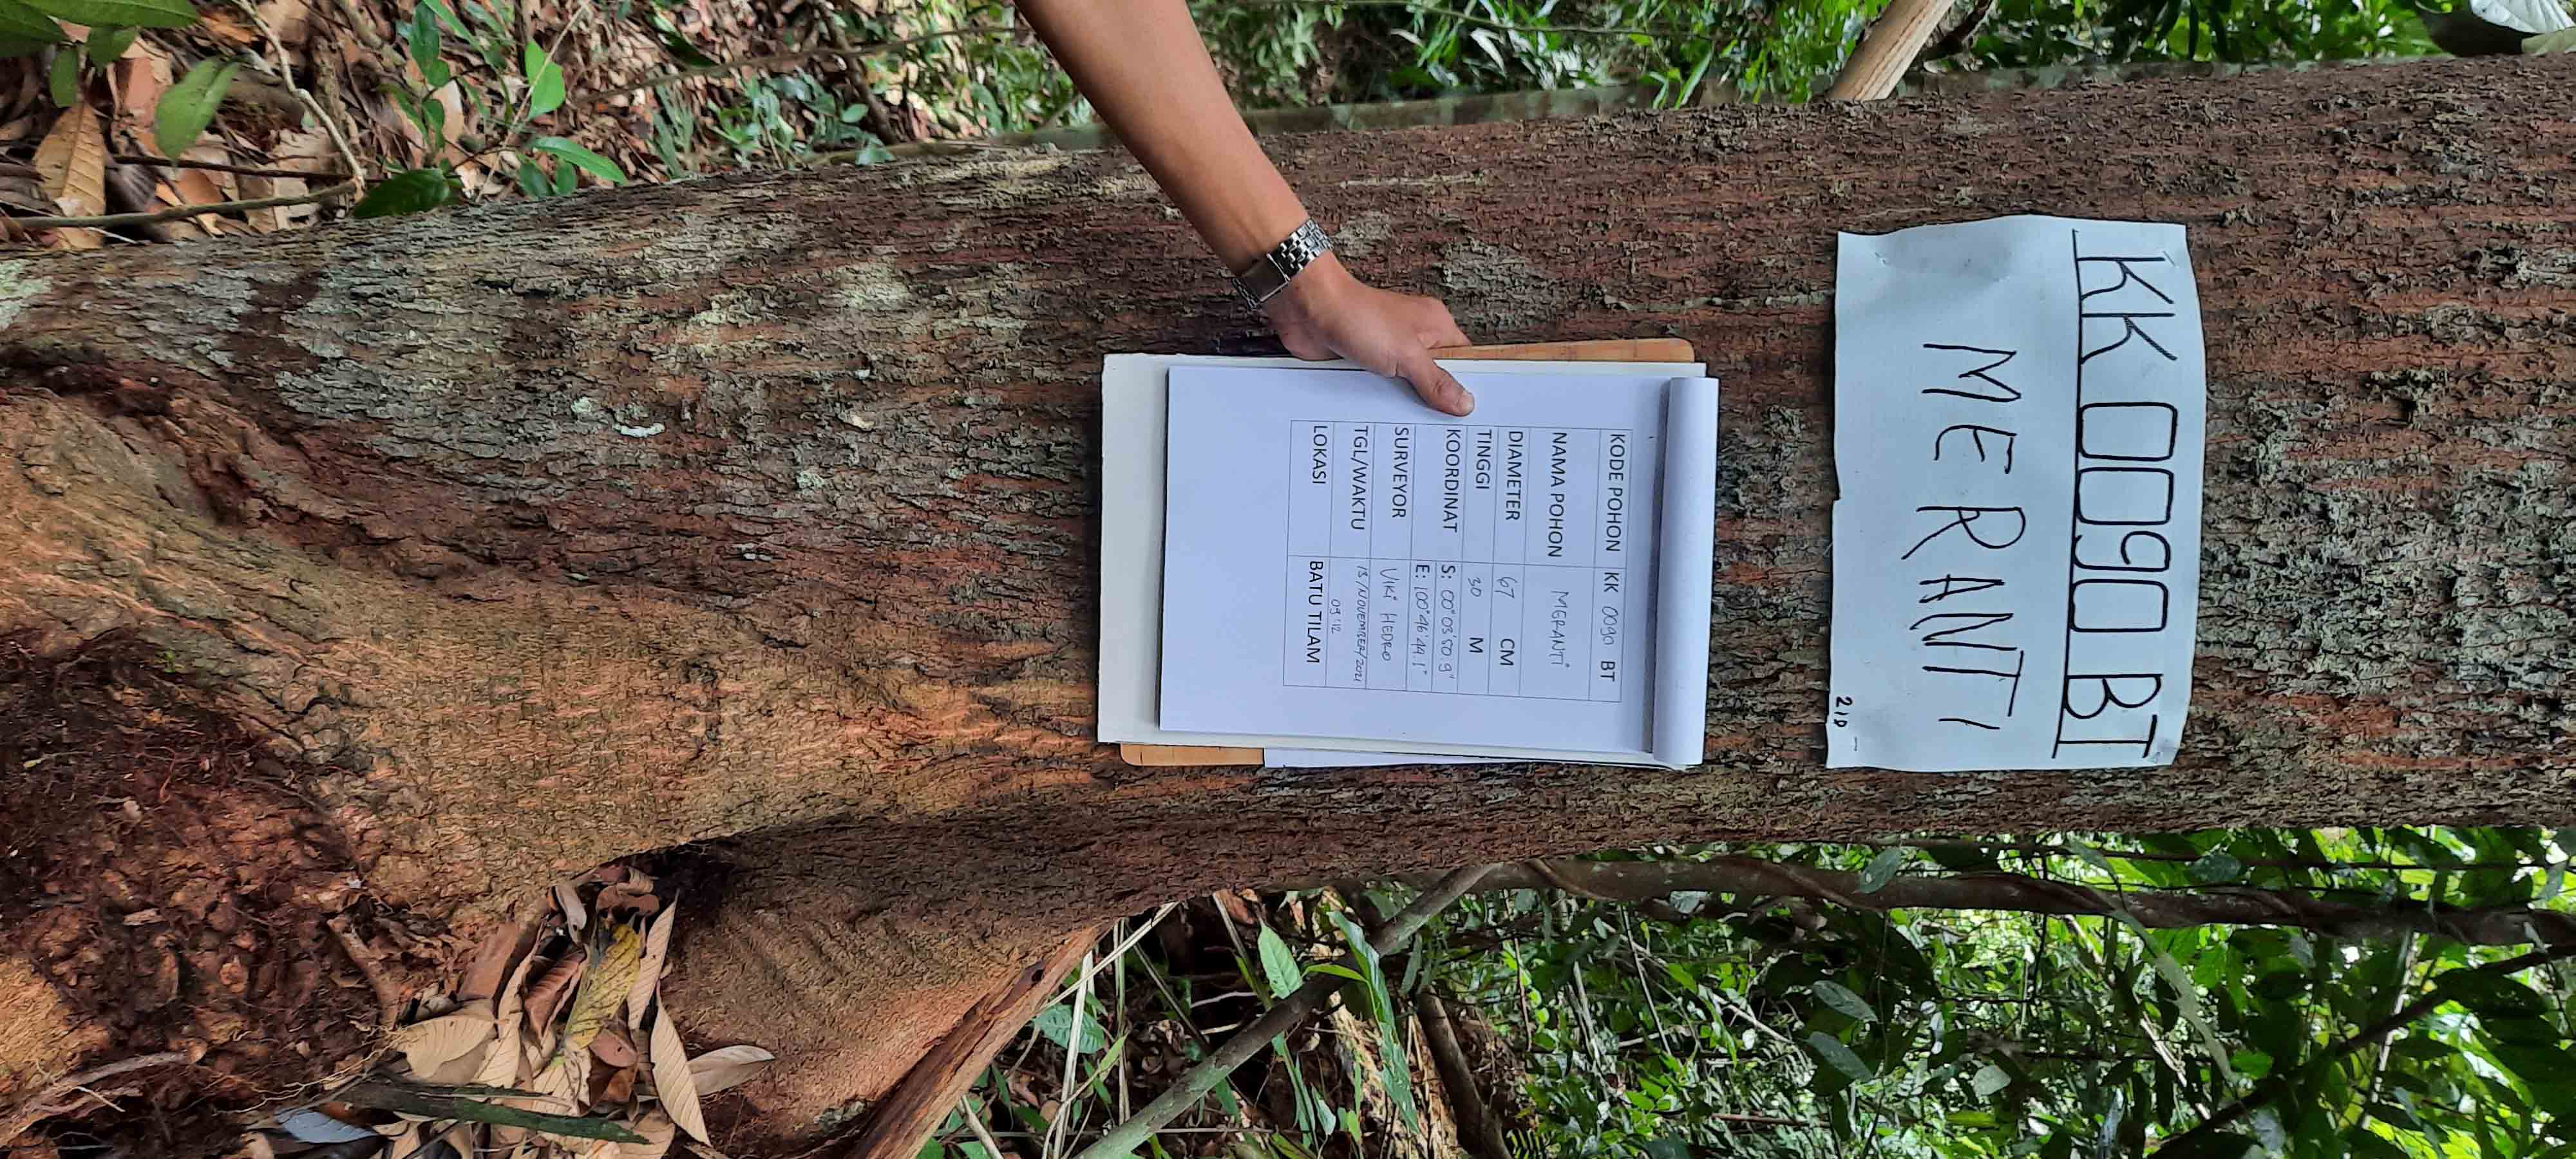 KK 0090 BT
MERANTI
210
KODE POHON KK 0090 BT
NAMA POHON MERANTI
DIAMETER 67 CM
TINGGI 30 M
KOORDINAT S: 00° 03' 50.9"
E: 100° 46' 44.1"
SURVEYOR VIKI HEDRO
TGL/WAKTU 13/NOVEMBER/2021
09:12
LOKASI BATU TILAM